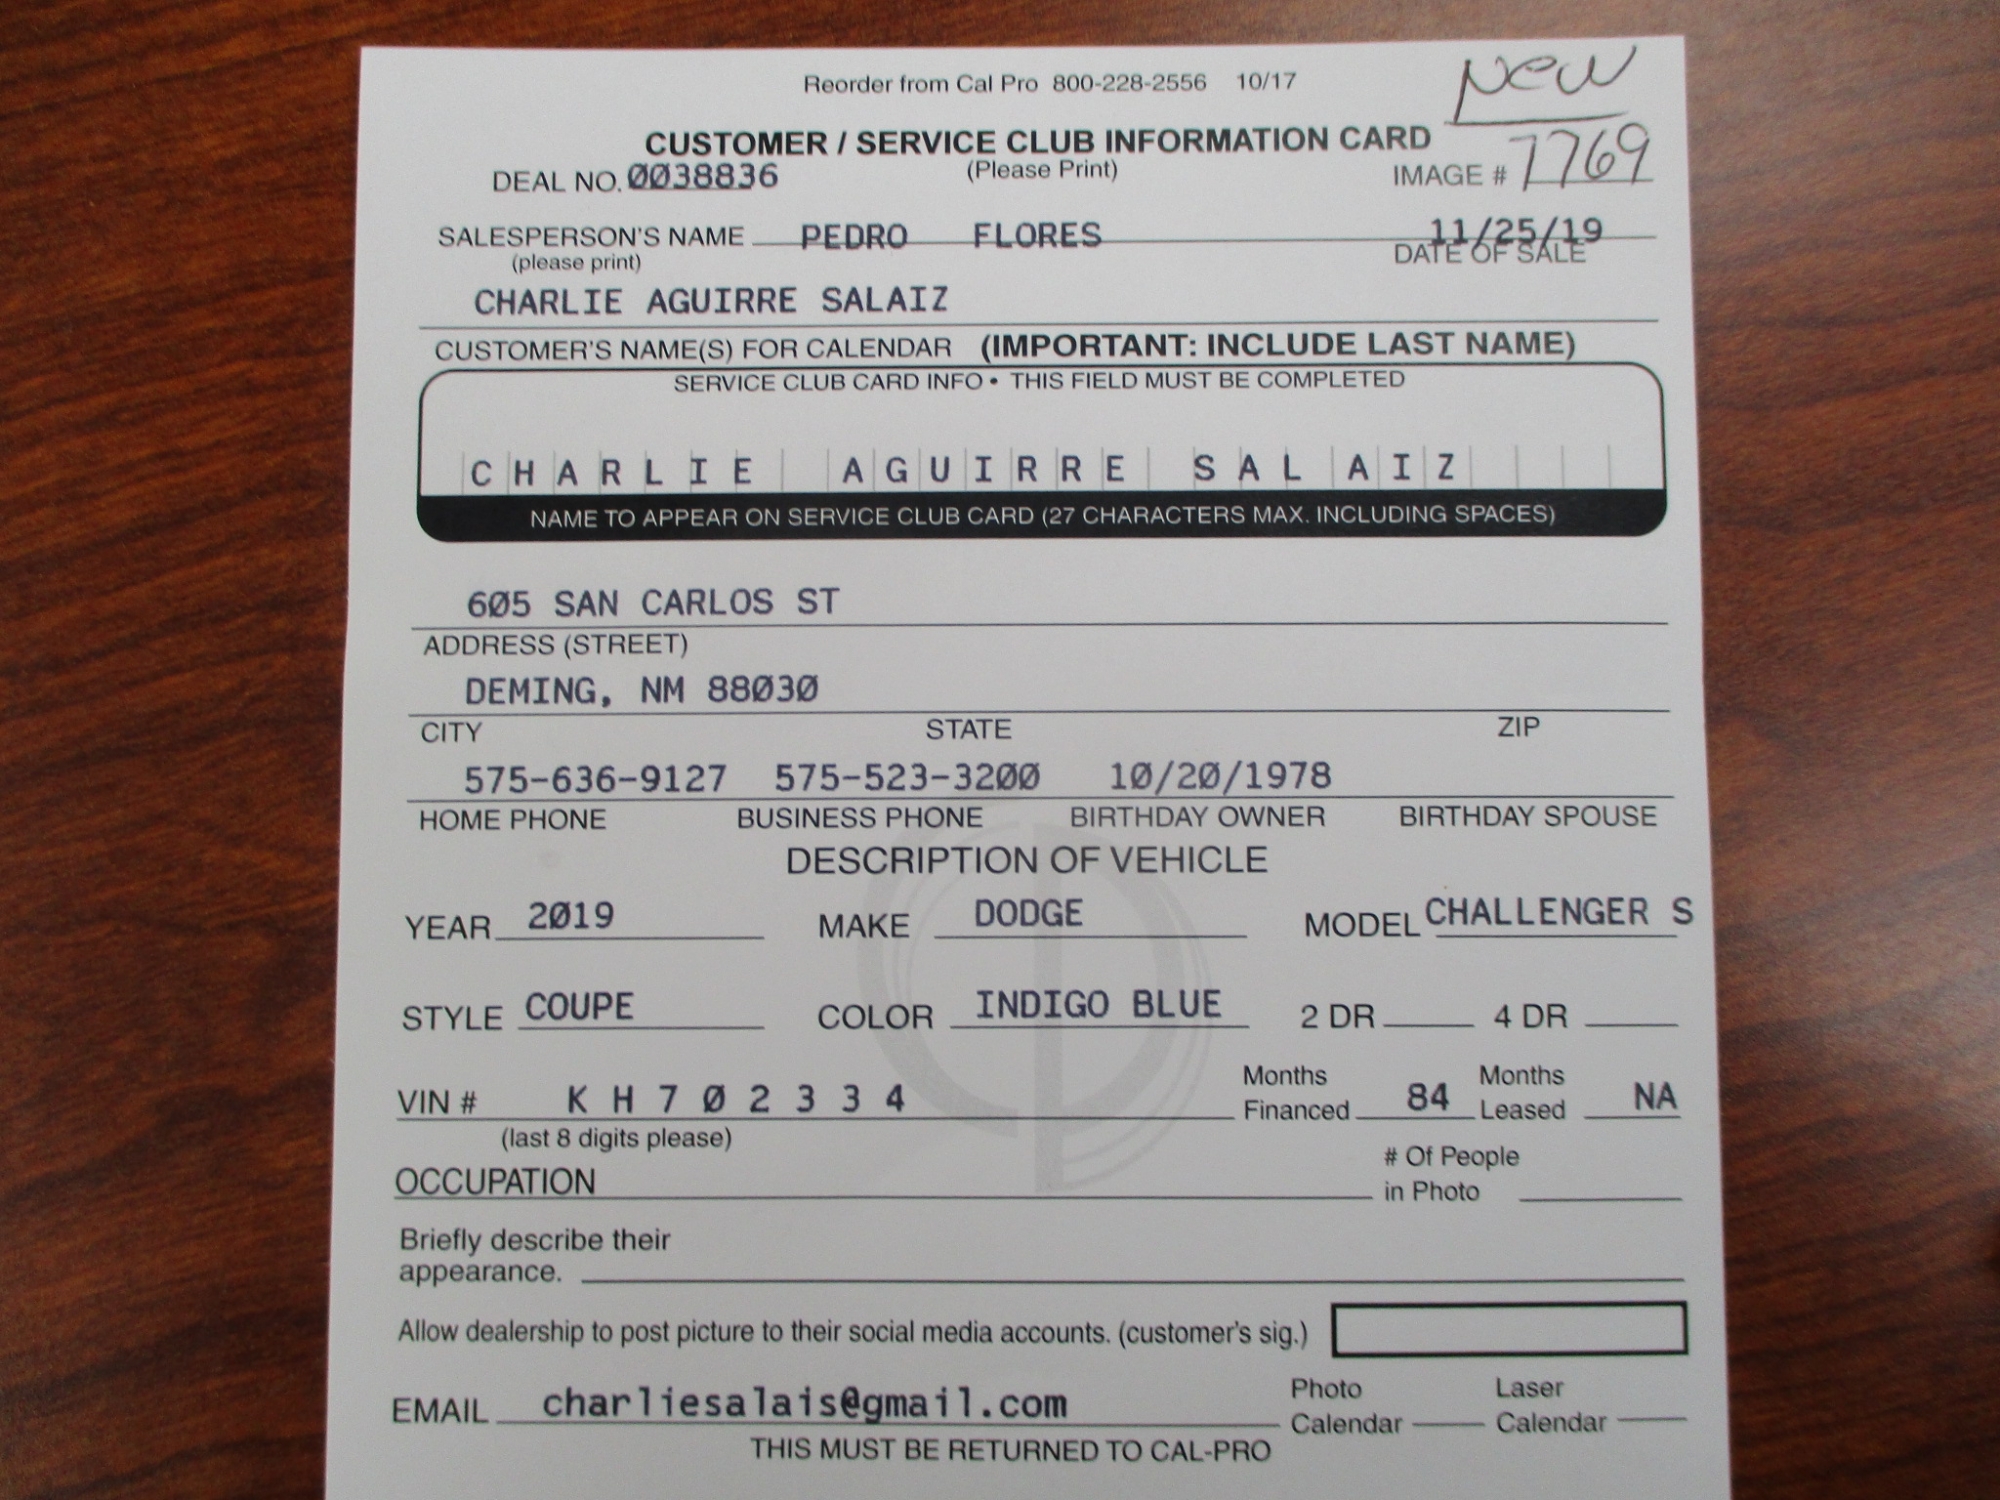 Reorder from Cal Pro 800-228-2556 10/17
New
CUSTOMER / SERVICE CLUB INFORMATION CARD
DEAL NO. 0038836 (Please Print) IMAGE # 7769
SALESPERSON'S NAME PEDRO FLORES 11/25/19
(please print) DATE OF SALE
CHARLIE AGUIRRE SALAIZ
CUSTOMER'S NAME(S) FOR CALENDAR (IMPORTANT: INCLUDE LAST NAME)
SERVICE CLUB CARD INFO • THIS FIELD MUST BE COMPLETED
CHARLIE AGUIRRE SALAIZ
NAME TO APPEAR ON SERVICE CLUB CARD (27 CHARACTERS MAX. INCLUDING SPACES)
605 SAN CARLOS ST
ADDRESS (STREET)
DEMING, NM 88030
CITY STATE ZIP
575-636-9127 575-523-3200 10/20/1978
HOME PHONE BUSINESS PHONE BIRTHDAY OWNER BIRTHDAY SPOUSE
DESCRIPTION OF VEHICLE
YEAR 2019 MAKE DODGE MODEL CHALLENGER S
STYLE COUPE COLOR INDIGO BLUE 2 DR 4 DR
VIN # KH702334 Months Financed 84 Months Leased NA
(last 8 digits please)
OCCUPATION # Of People in Photo
Briefly describe their
appearance.
Allow dealership to post picture to their social media accounts. (customer's sig.)
EMAIL charliesalais@gmail.com Photo Calendar Laser Calendar
THIS MUST BE RETURNED TO CAL-PRO